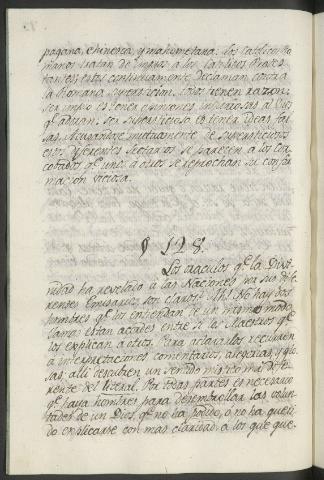 pagana, chinesca, y mahometana. los Catolicos Ro
manos tratan de impios a los Catolicos Protes
tantes: estos continuamente declaman contra
la Romana supersticion. todos tienen razon:
ser impio es tener opiniones injuriosas al Dios
qe. adoran: ser supersticioso es tener ideas fal
sas. Acusandose mutuamente de supersticiosos
estos diferentes sectarios se parecen a los cor
cobados qe. unos a otros se reprochan su confor
macion viciosa.
§ 128.
Los oraculos qe. la Divi
nidad ha revelado a las Naciones por sus dife
rentes Emisarios son claros? Ah! No hay dos
hombres qe. los entiendan de un mismo modo
jamas estan acordes entre si los Maestros qe.
los explican a otros. Para aclararlos recurren
a interpretaciones, comentarios, alegorias, y glo
sas: alli descubren un sentido mistico mui dife
rente del literal. Por todas partes es necesario
qe. haya hombres para desembrollar las volun
tades de un Dios, qe. no ha podido, o no ha queri
do explicarse con mas claridad a los que que-